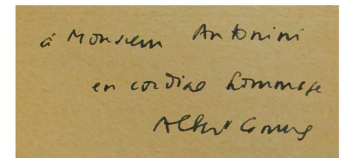 à Monsieur Antonini
en cordial hommage
Albert Camus